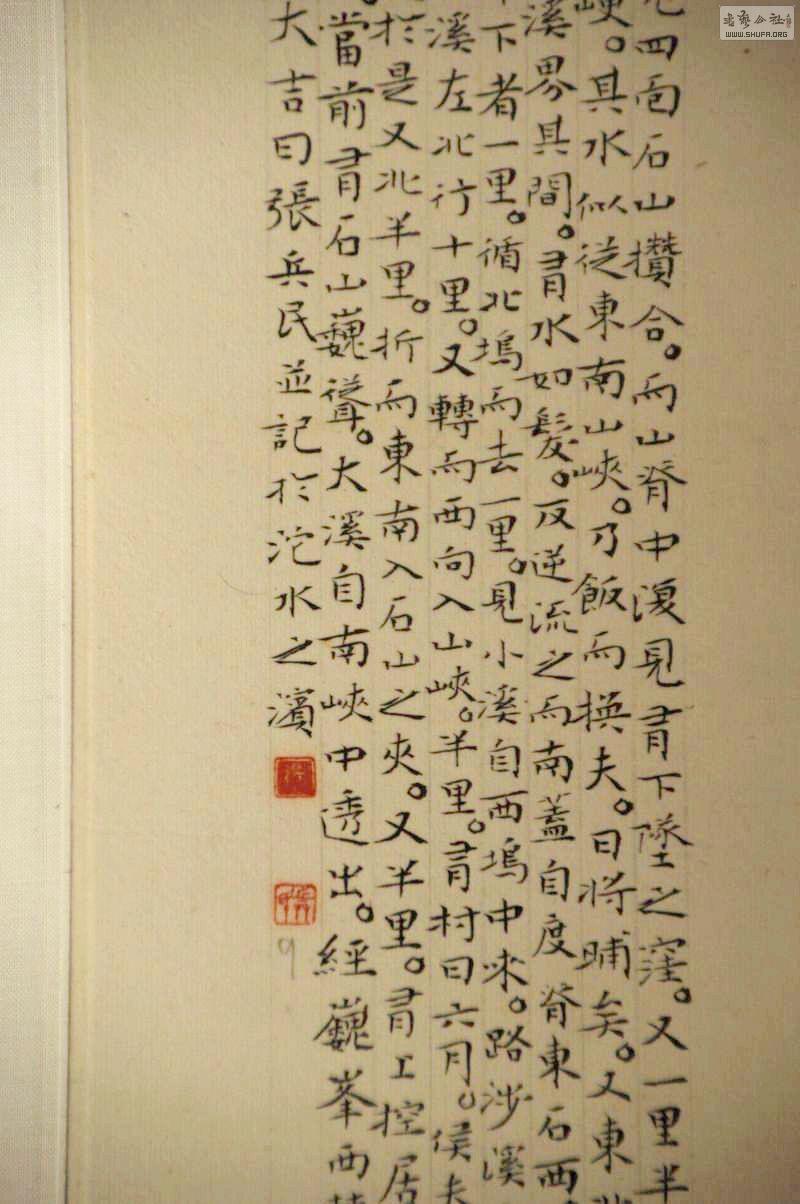 四面石山攢合。而山脊中復見有下墜之窪。又一里半
峺。其水似從東南山峽。乃飯而換夫。日將晡矣。又東北
溪界其間。有水如髮。反逆流之而南蓋自度脊東石西
下者一里。循北塢而去一里。見小溪自西塢中來。路涉溪
溪左北行十里。又轉而西向入山峽。半里。有村曰六月。侯夫
於是又北半里。折而東南入石山之夾。又半里。有工控居
當前有石山巍聳。大溪自南峽中透出。經巍峯西
大吉日張兵民並記於沱水之濱
書藝公社
WWW.SHUFA.ORG